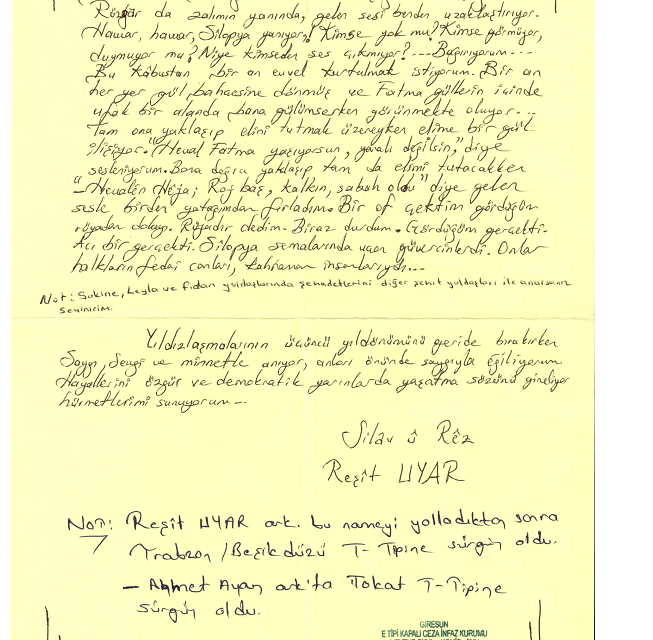 Rüzgâr da zalimin yanında, gelen sesi benden uzaklaştırıyor.
Hawar, hawar, Silopya yanıyor! Kimse yok mu? Kimse görmüyor,
duymuyor mu? Niye kimseden ses çıkmıyor?... Bağırıyorum...
Bu kâbustan bir an evvel kurtulmak istiyorum. Bir an
her yer gül bahçesine dönmüş ve Fatma güllerin içinde
ufak bir alanda bana gülümserken görünmekte oluyor...
Tam ona yaklaşıp elini tutmak üzereyken elime bir gül
ilişiyor. "Heval Fatma yaşıyorsun, yaralı değilsin," diye
sesleniyorum. Bana doğru yaklaşıp tam da elimi tutacakken
"Hevalên Hêja; Roj baş, kalkın, sabah oldu" diye gelen
sesle birden yatağımdan fırladım. Bir of çektim gördüğüm
rüyadan dolayı. Rüyadır dedim. Biraz durdum. Gördüğüm gerçekti.
Acı bir gerçekti. Silopya semalarında uçan güvercinlerdi. Onlar
halkların fedai canları, kahraman insanlarıydı...
Not: Sakine, Leyla ve Fidan yoldaşlarında şehadetlerini diğer şehit yoldaşları ile anarsanız
sevinirim.
Yıldızlaşmalarının üçüncü yıldönümünü geride bırakırken
Saygı, Sevgi ve minnetle anıyor, anıları önünde saygıyla eğiliyorum
Hayallerini özgür ve demokratik yarınlarda yaşatma sözünü yineliyor
hürmetlerimi sunuyorum -
Silav û Rêz
Reşit UYAR
NOT: Reşit UYAR ark. bu nameyi yolladıktan sonra
Trabzon / Beşikdüzü T-Tipine sürgün oldu.
- Ahmet Ayan ark'ta Tokat T-Tipine
sürgün oldu.
GİRESUN
E TİPİ KAPALI CEZA İNFAZ KURUMU